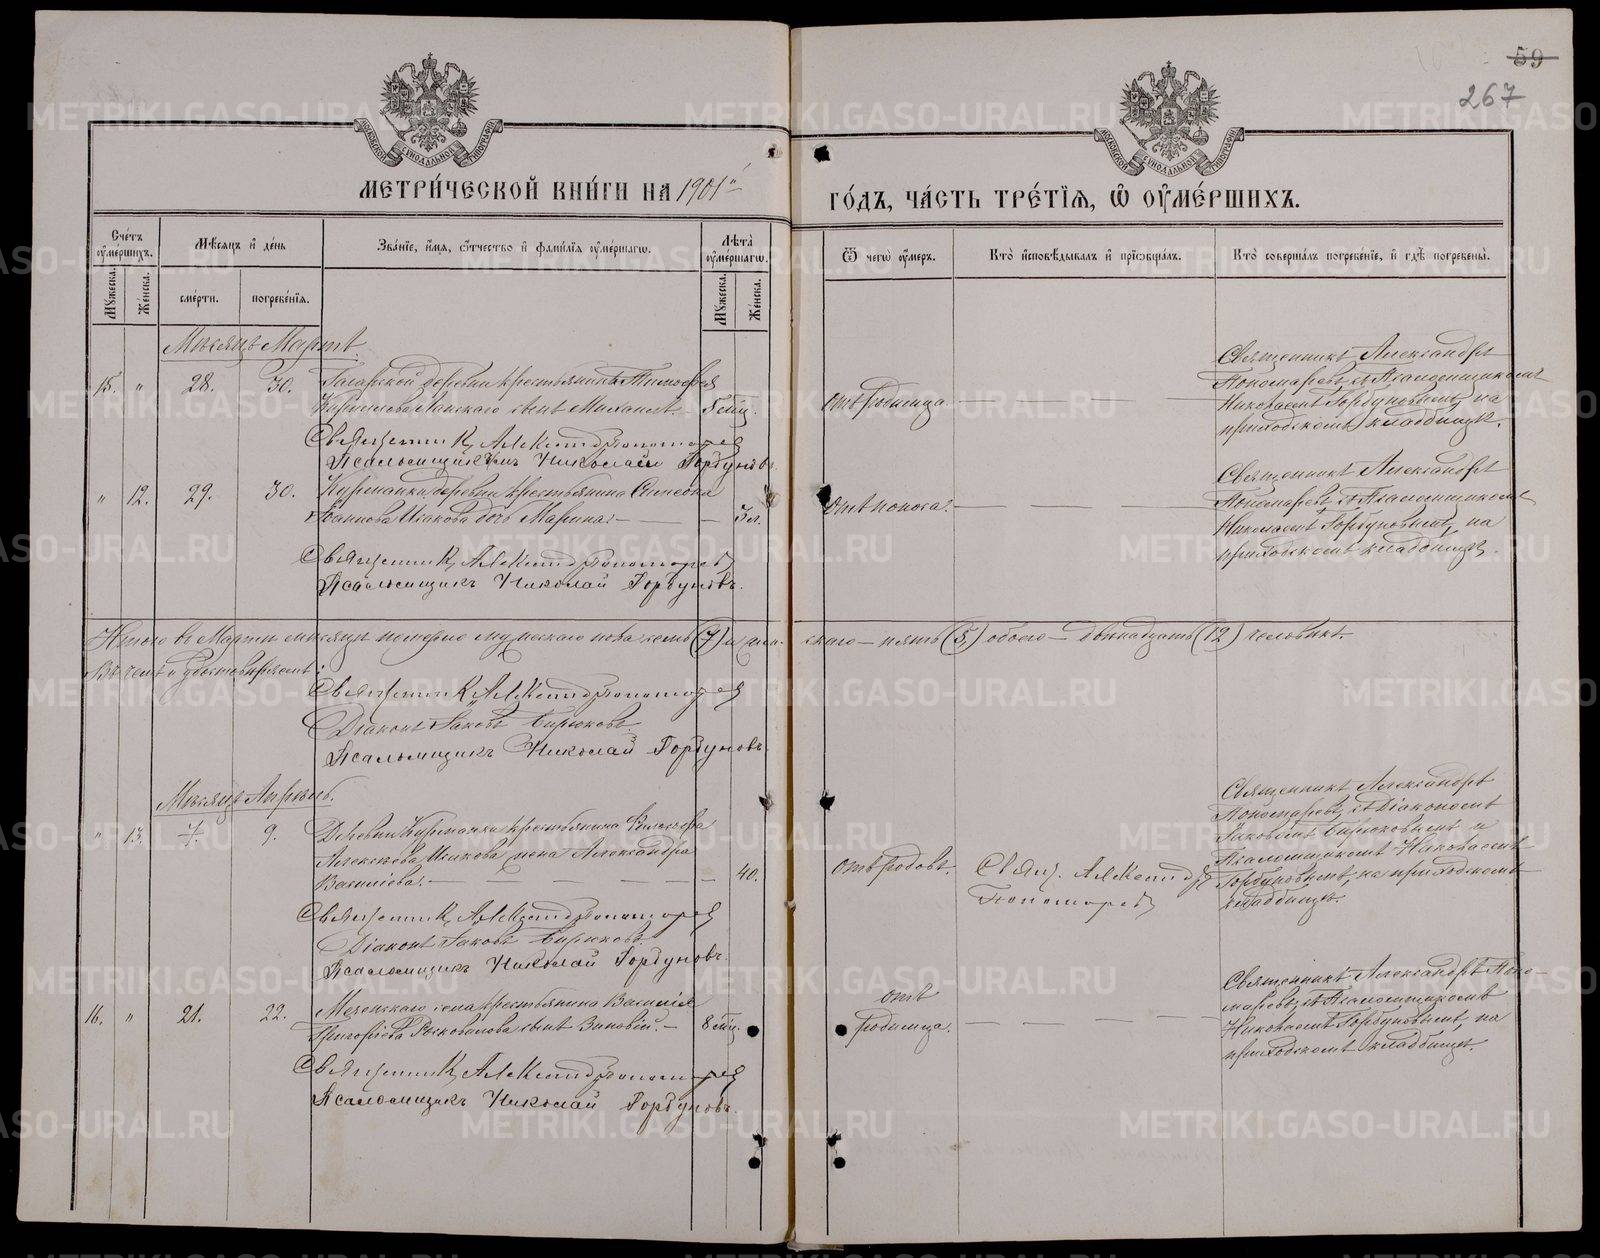 59
267
МОСКОВСКОЙ СѴНОДАЛЬНОЙ ТИПОГРАФІИ
МОСКОВСКОЙ СѴНОДАЛЬНОЙ ТИПОГРАФІИ
МЕТРИ́ЧЕСКОЙ КНИ́ГИ НА 1901й
ГО́ДЪ, ЧА́СТЬ ТРЕ́ТІЯ, Ѡ҆ ОУ҆МЕ́РШИХЪ.
Сче́тъ оу҆ме́ршихъ.
Мꙋ́жеска.
Же́нска.
Мѣ́сяцъ и҆ де́нь
сме́рти.
погребе́нїя.
Зва́нїе, и҆́мя, ѻ҆́тчество и҆ фами́лїя оу҆ме́ршагѡ.
Лѣ́та оу҆ме́ршагѡ.
Мꙋ́жеска.
Же́нска.
Ѿ чегѡ̀ оу҆́меръ.
Кто̀ и҆сповѣ́дывалъ и҆ прїѡбща́лъ.
Кто̀ соверша́лъ погребе́нїе, и҆ гдѣ̀ погребены̀.
Мѣсяцъ Мартъ.
15. " 28. 30.
деревни крестьянина Тимофея
сынъ Михаилъ
отъ родимца.
Священникъ Александръ
Пономаревъ съ Псаломщикомъ
Николаемъ Горбуновымъ, на
приходскомъ кладбищѣ.
Священникъ Александръ Пономаревъ
Псаломщикъ Николай Горбуновъ
" 12. 29. 30.
Курманки деревни крестьянина Симеона
Іоаннова Исакова дочь Марина. 3 л.
отъ поноса.
Священникъ Александръ
Пономаревъ съ Псаломщикомъ
Николаемъ Горбуновымъ, на
приходскомъ кладбищѣ.
Священникъ Александръ Пономаревъ
Псаломщикъ Николай Горбуновъ.
Итого въ Мартѣ мѣсяцѣ померло мужескаго пола семь (7) и жен-
скаго – пять (5) обоего – двѣнадцать (12) человѣкъ.
Въ чемъ и удостовѣряемъ:
Священникъ Александръ Пономаревъ
Діаконъ Іаковъ Бирюковъ
Псаломщикъ Николай Горбуновъ
Мѣсяцъ Апрѣль.
" 13. 7. 9.
Деревни Курманки крестьянина
Алексѣева Исакова жена Александра
Васильева. 40.
отъ родовъ.
Свящ. Александръ
Пономаревъ
Священникъ Александръ
Пономаревъ съ Діакономъ
Іаковомъ Бирюковымъ и
Псаломщикомъ Николаемъ
Горбуновымъ, на приходскомъ
кладбищѣ.
Священникъ Александръ Пономаревъ
Діаконъ Іаковъ Бирюковъ
Псаломщикъ Николай Горбуновъ.
16. " 21. 22.
Мезенскаго села крестьянина Василія
Григорьева сынъ Зиновій. 8 мѣс.
отъ
родимца.
Священникъ Александръ Поно-
маревъ съ Псаломщикомъ
Николаемъ Горбуновымъ, на
приходскомъ кладбищѣ.
Священникъ Александръ Пономаревъ
Псаломщикъ Николай Горбуновъ.
METRIKI.GASO-URAL.RU